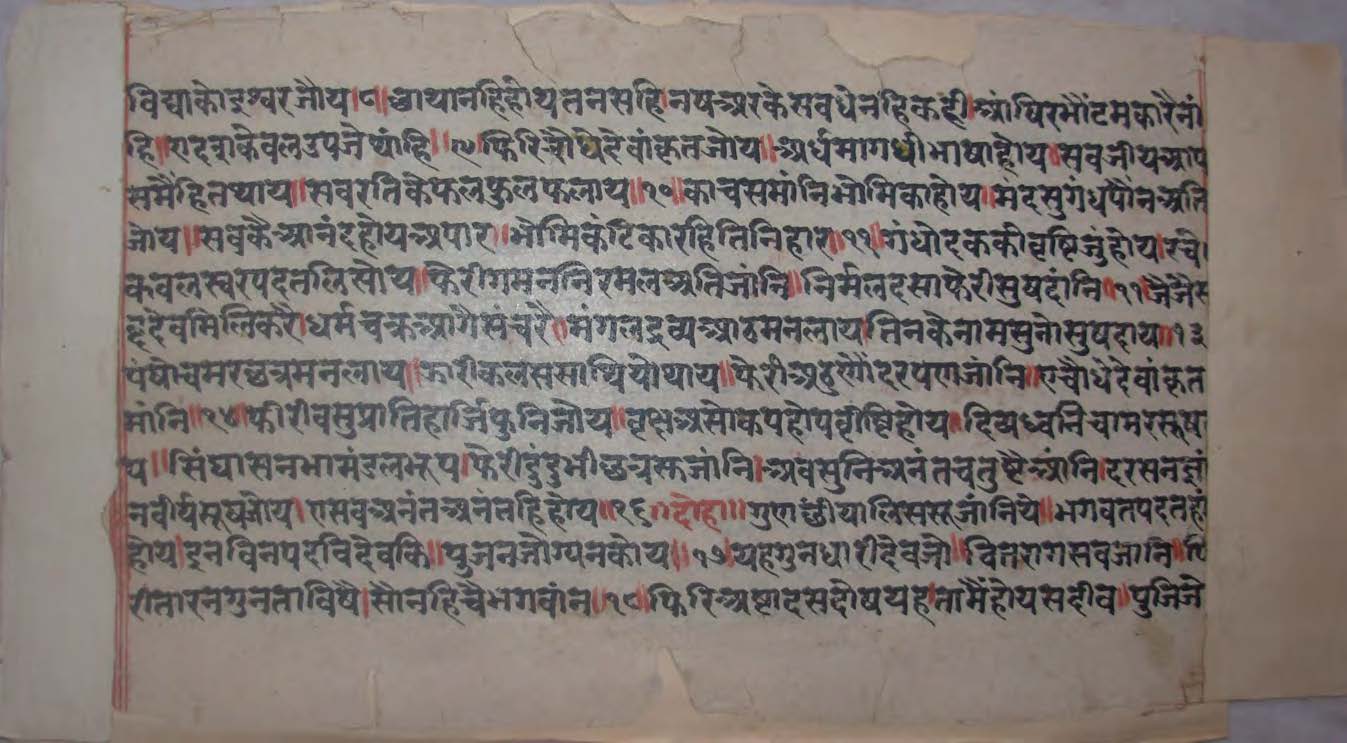 विद्याकोइश्वरजौय॥८॥छायानहिहोयतनसहि।नषअरकेसवधेनहिकहीं।आंषिरभौंटमकारैनां
हि॥एादसकेवलउपजेथांहि॥९॥फिरिचौधेदेवांकृतजोय॥अर्धमागधीभाषाहोय॥सवजीयआप
समैंहितथाय॥सवरतिकेफलफुलफलाय॥१०॥काचसमांनिभोमिकाहोय॥मदसुगंधपौंनअति
जोय॥सवकैआनंदहोयअपार॥भोमिकंटिकारहितिनिहार॥११॥गंधोदककीवृष्टिजुंहोय।रचे।
कवलस्वरपदतलिसोय॥फैरीगमननिरमलअतिजांनि॥निर्मलदसाफैरीसुषदांनि॥१२॥जैजैस
हृदेवमिलिकरै।धर्मचक्रआगैसंचरै॥मंगलद्रव्यआठमनलाय।तिनकेनामसुनोसुषदाय॥१३
पंषोचमरछत्रमनलाय॥झारीकलससाथियोथाय॥फेरीअठुणौंदरपणजांनि॥एचौधेदेवांकृत
मांनि॥१४॥फीरीवसुप्रातिहार्जिफुनिजोय॥वृक्षअसोकपहोपवृष्टिहोय॥दिव्यध्वनिचामरसूष
य॥सिंघासनभामंडलभूप।फैरीदुंदुभीछत्रस्तजांनि।अवसुनिअनंतचतुष्टैआंनि।दरसनज्ञां
नवीर्यसूषजोय।एसवअनंतअनंतहिहोय॥१६॥दोहा॥गुणछीयालिससूजांनिये॥भगवतपदतहां
होय।इनविनपदविदेवकि॥पुजनजोग्यनकोय॥१७॥यहगुनधारीदेवजो॥वितरागसवजानि॥
रीतारनगुनताविषै।सौनहिचैभगवांन॥१८॥फिरिअष्टादसदोषयह।तामैंहोयसदीव॥पुजिजे